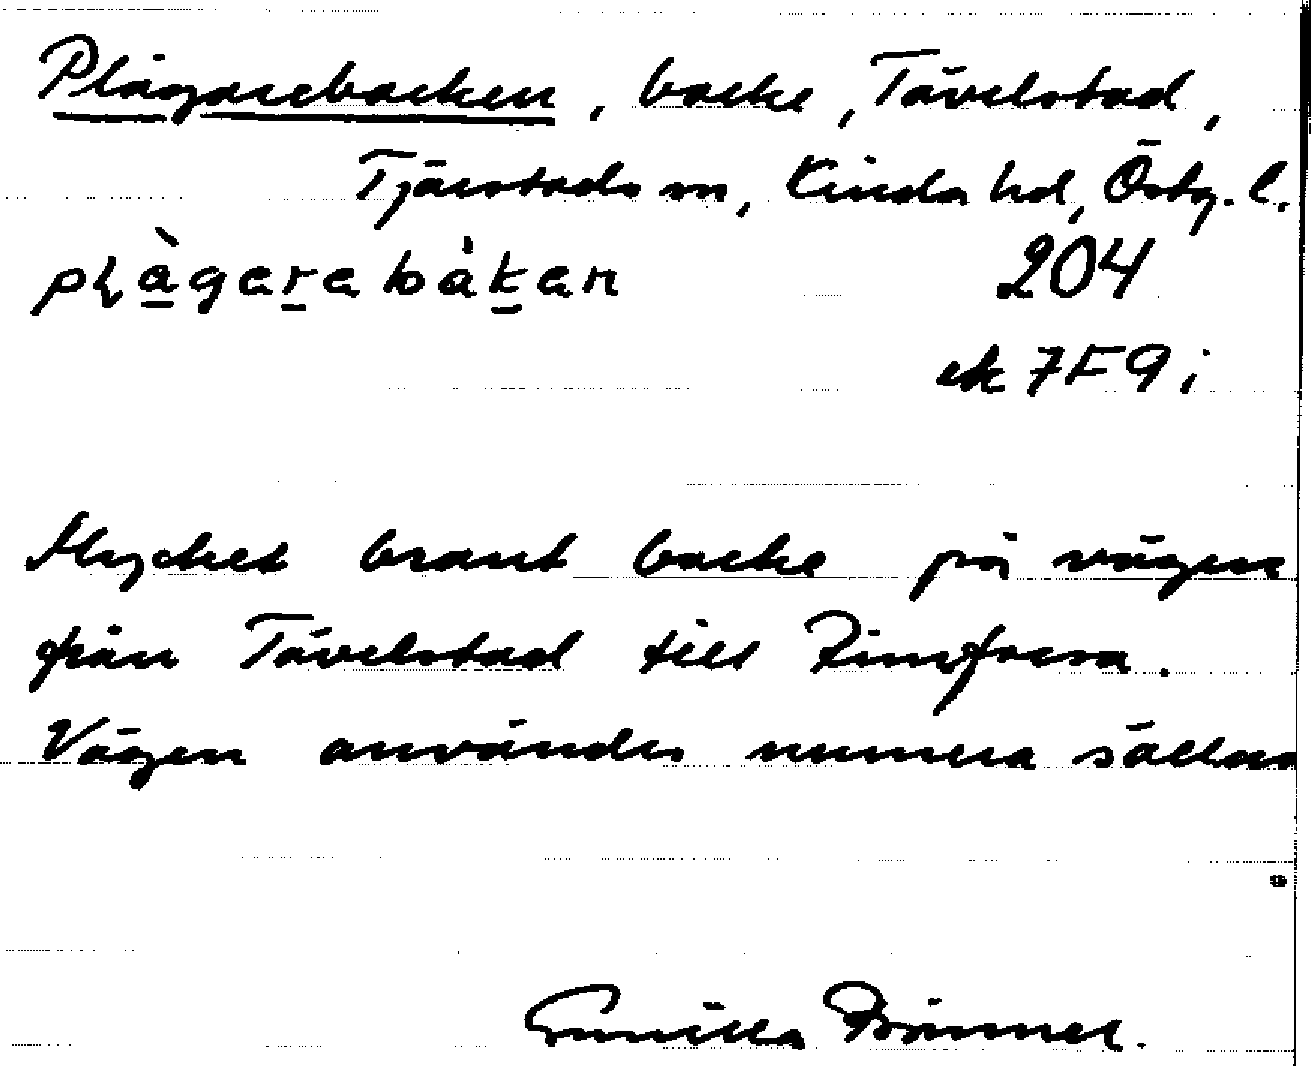 Plågarebacken, backe, Tävelstad,
Tjärstads sn, Kinda hd, Östg. l.
plàgarebákan 204
ek 7F9i
Mycket brant backe på vägen
från Tävelstad till Rimforsa.
Vägen användes numera sällan
Gunilla